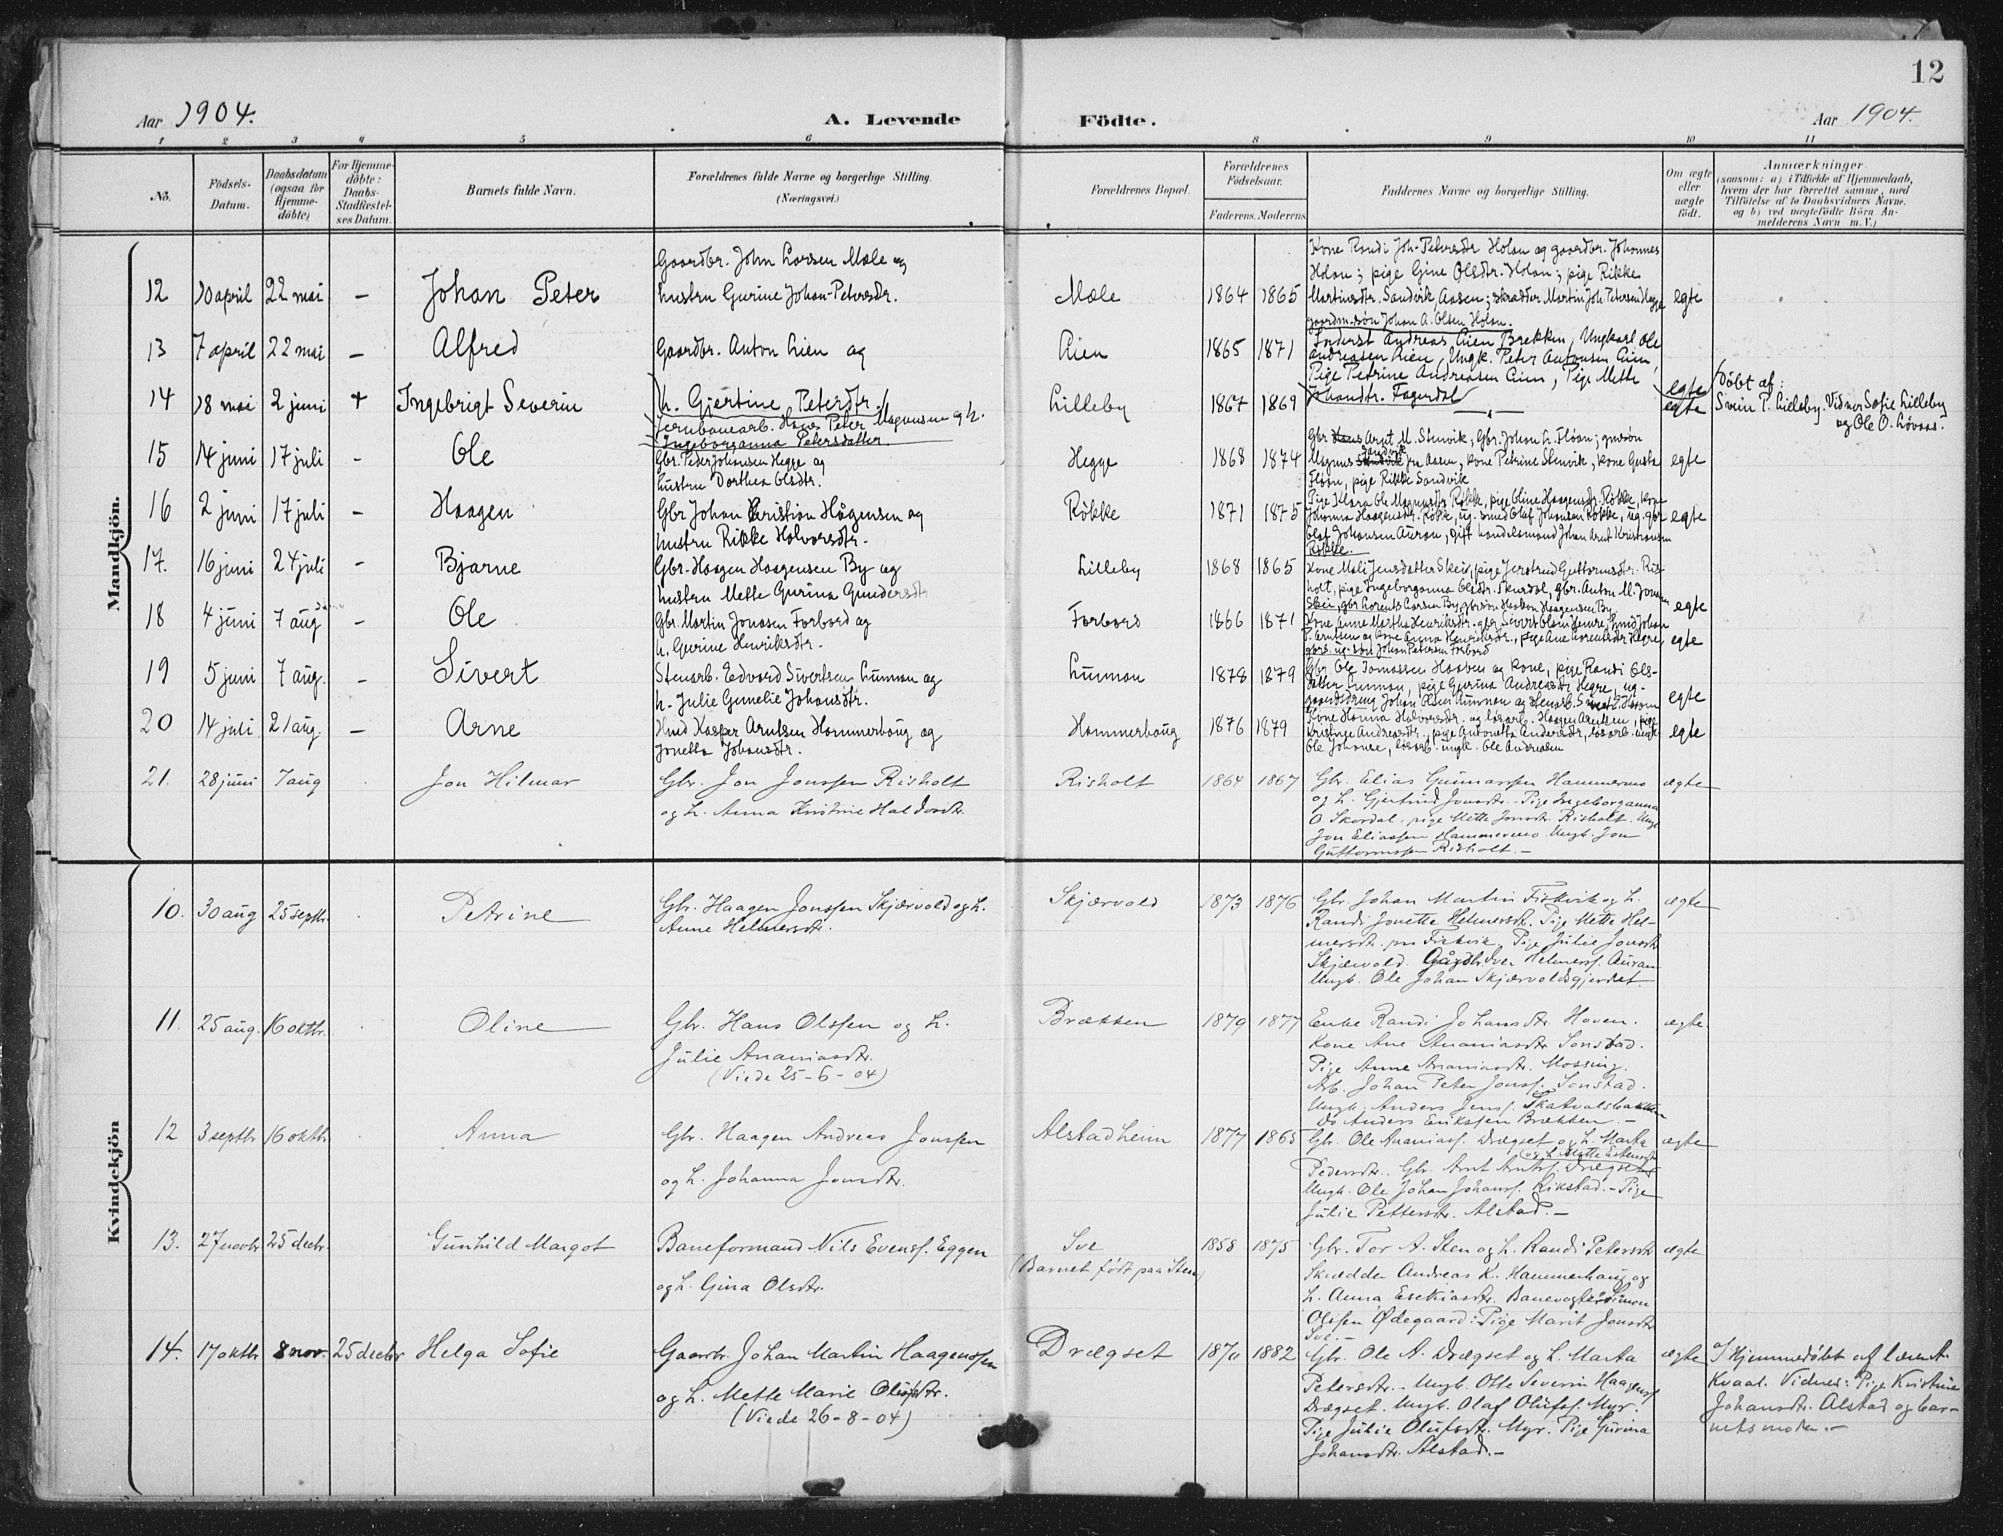 12
Aar 1904.
A. Levende Födte.
Aar 1904.
1 2 3 4 5 6 8 9 10 11
No.
Födsels-
Datum.
Daabsdatum
(ogsaa for
Hjemme-
döbte)
For Hjemme-
döbte:
Daabs-
Stadfæstel-
ses Datum.
Barnets fulde Navn.
Forældrenes fulde Navne og borgerlige Stilling.
(Næringsvei.)
Forældrenes Bopæl.
Forældrenes
Födselsaar.
Faderens. Moderens.
Faddernes Navne og borgerlige Stilling.
Om ægte
eller
uægte
födt.
Anmærkninger
(saasom: a) i Tilfælde af Hjemmedaab,
hvem der har forrettet samme, med
Tilföielse af to Daabsvidners Navne.
og b) ved uægtefödte Börn An-
melderens Navn m. V.)
Mandkjön.
12 10 april 22 mai – Johan Peter
Gaardbr. John Larsen Mæle og
hustru Gurine Johan-Petersdtr.
Mæle 1864 1865
Kone Randi Joh-Petersdtr Holan og gaardbr. Johannes
Holan; pige Gine Olsdtr. Holan; pige Rikke
Martinsdtr. Sandvik Aasen; skrædder Martin Joh. Petersen Hegge
gaardm.søn Johan A. Olsen Holan.
egte
13 7 april 22 mai – Alfred
Gaardbr. Anton Lien og
h. Gjertine Petersdtr.
Lien 1865 1871
Inderst Andreas Lien Brekken, Ungkarl Ole
Andreasen Lien, Ungk. Peter Antonsen Lien,
Pige Petrine Andreasen Lien, Pige Mette
Johandtr. Fagerdal
egte
14 18 mai 2 juni + Ingebrigt Severin
Jernbanearb. Hans Peter Magnusen og h.
Ingeborganna Petersdatter.
Lilleby 1867 1869
egte
Döbt af:
Svein P. Lilleby. Vidner Sofie Lilleby
og Ole O. Løvaas.
15 14 juni 17 juli – Ole
Gbr. Peder Johansen Hegge og
hustru Dorthea Olsdtr.
Hegge 1868 1874
Gbr Arnt M. Stenvik; Gbr. Johan L. Fløan; gmsøn
Magnus Sandvik fra Aasen, kone Petrine Stenvik, kone Gusta
Fløan, pige Rikke Sandvik
egte
16 2 juni 17 juli – Haagen
Gbr Johan Kristian Hågensen og
hustru Rikke Halvorsdtr.
Røkke 1871 1875
Pige Klara Ole Magnusdtr Røkke, pige Oline Haagensdtr. Røkke, kone
Johanna Haagensdtr. Røkke, ug. smed Olaf Johansen Røkke, ug. gbr
Olaf Johansen Auran, gift handelsmand Johan Arnt Kristiansen
Røkke.
egte
17. 16 juni 24 juli – Bjarne
Gbr. Haagen Haagensen By og
hustru Mette Gurina Gundersdtr
Lilleby 1868 1865
Kone Mali Jensdatter Skei, pige Jertrud Guttormsdtr. Ris-
holt, pige Ingeborganna Olsdtr. Skurdal, gbr. Anton M. Jonsen
Skei, gbr Lorents Larsen By, gbrsøn Haakon Haagensen By
egte
18 4 juni 7 aug – Ole
Gbr. Martin Jonasen Forbord og
h. Gurine Henriksdtr.
Forbors 1866 1871
Kone Anne Martha Henriksdtr.
gbrs. ug. søn Johan Petersen Forbord
egte
19 5 juni 7 aug. – Sivert
Stenarb. Edvard Sivertsen Lunnan og
h. Julie Gunelie Johansdtr.
Lunnan 1878 1879
Gbr. Ole Tomassen Haaben og kone, pige Randi Ols-
datter Lunnan, pige Gurina Andreasdtr Hegre, ug.
egte
20 14 juli 21 aug. – Arne
Hmd Kasper Arntsen Hammerhaug og
Jonetta Johansdtr.
Hammerhaug 1876 1879
Kone Hanna Halvorsdtr. og løsarb. Haagen Arntsen, pige
Kristine Andreasdtr., pige Antonetta Andersdtr, løsarb. ungk.
Ole Johnsen, løsarb. ungk. Ole Andreasen
egte
21. 28 juni 7 aug Jon Hilmar
Gbr. Jon Jonssen Risholt
og h. Anna Kristine Haldorsdtr.
Risholt 1864 1867
Gbr. Elias Gunnarssen Hammermo
og h. Gjertrud Jonsdtr. – Pige Ingeborganna
O. Skordal. pige Mette Jonsdtr. Risholt. Ungk.
Jon Eliassen Hammermo. Ungk. Jon
Guttormssen Risholt. –
ægte
Kvindekjön
10. 30 aug 25 septbr. Petrine
Gbr. Haagen Jonssen Skjærvold og h.
Anne Helmersdtr.
Skjærvold 1873 1876
Gbr Johan Martin Fiskvik og h.
Randi Jonette Helmersdtr. Pige Mette Hel-
mersdtr. fra Fiskvik. Pige Julie Jonsdtr
Skjærvold. Gårdbr. Iver Helmerss. Auran
Ungk. Ole Johan Skjærvoldsgjerdet.
ægte
11. 25 aug. 16 oktbr. Oline
Gbr. Hans Olssen og h.
Julie Ananiasdtr.
(Viede 25-6-04)
Brækken 1879 1877
Enke Randi Johansdtr. Hoven.
Kone Ane Ananiasdtr Sonstad.
Pige Anne Ananiasdtr. Mossing.
Arb. Johan Peter Jonss. Sonstad.
Ungk. Anders Jenss. Skatvalsbakken
Do Anders Erikssen Brækken. –
ægte.
12 3 septbr 16 oktbr. Anna
Gbr. Haagen Andreas Jonssen
og h. Johanna Jonsdtr.
Alstadheim 1877 1865
Gbr. Ole Ananiass. Drægset og h. Marta
(og h. Mette Estensdtr
Pedersdtr. Gbr. Arnt Arntss. Drægset
Ungk. Ole Johan Johanss. Rikstad. – Pige
Julie Pettersdtr. Alstad. –
ægte
13. 27 novbr 25 decbr. Gunhild Margot
Baneformand Nils Evenss. Eggen
og h. Gina Olsdtr.
Sve
(Barnet født paa Sten)
1858 1875
Gbr. Tor A. Sten og h. Randi Petersdtr
Skrædder Andreas K. Hammerhaug og
h. Anna Esekiasdtr. Banevogter Simon
Olssen Ødegaard: Pige Marit Jonsdtr
Sve. –
ægte
14. 17 oktbr 8 nov. 25 decbr Helga Sofie
Gaardbr. Johan Martin Haagenssen
og h. Mette Marie Olufsdtr.
(Viede 26-8-04)
Drægset 1870 1882
Gbr. Ole A. Drægset og h. Marta
Petersdtr. – Ungk. Otte Severin Haagenss.
Drægset. Ungk. Olaf Olufss. Myr.
Pige Julie Olufsdtr. Myr. Pige Gurina
Johansdtr. Alstad. –
ægte
Hjemmedøbt af lærer A.
Kvaal. Vidner: Pige Kristine
Johansdtr. Alstad og bar-
nets moder. –